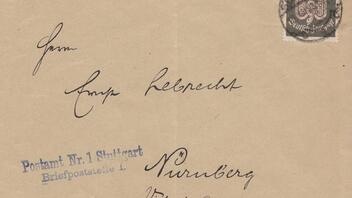 Herrn
Ernst Lebrecht
Postamt Nr. 1 Stuttgart
Briefpoststelle I.
Nürnberg